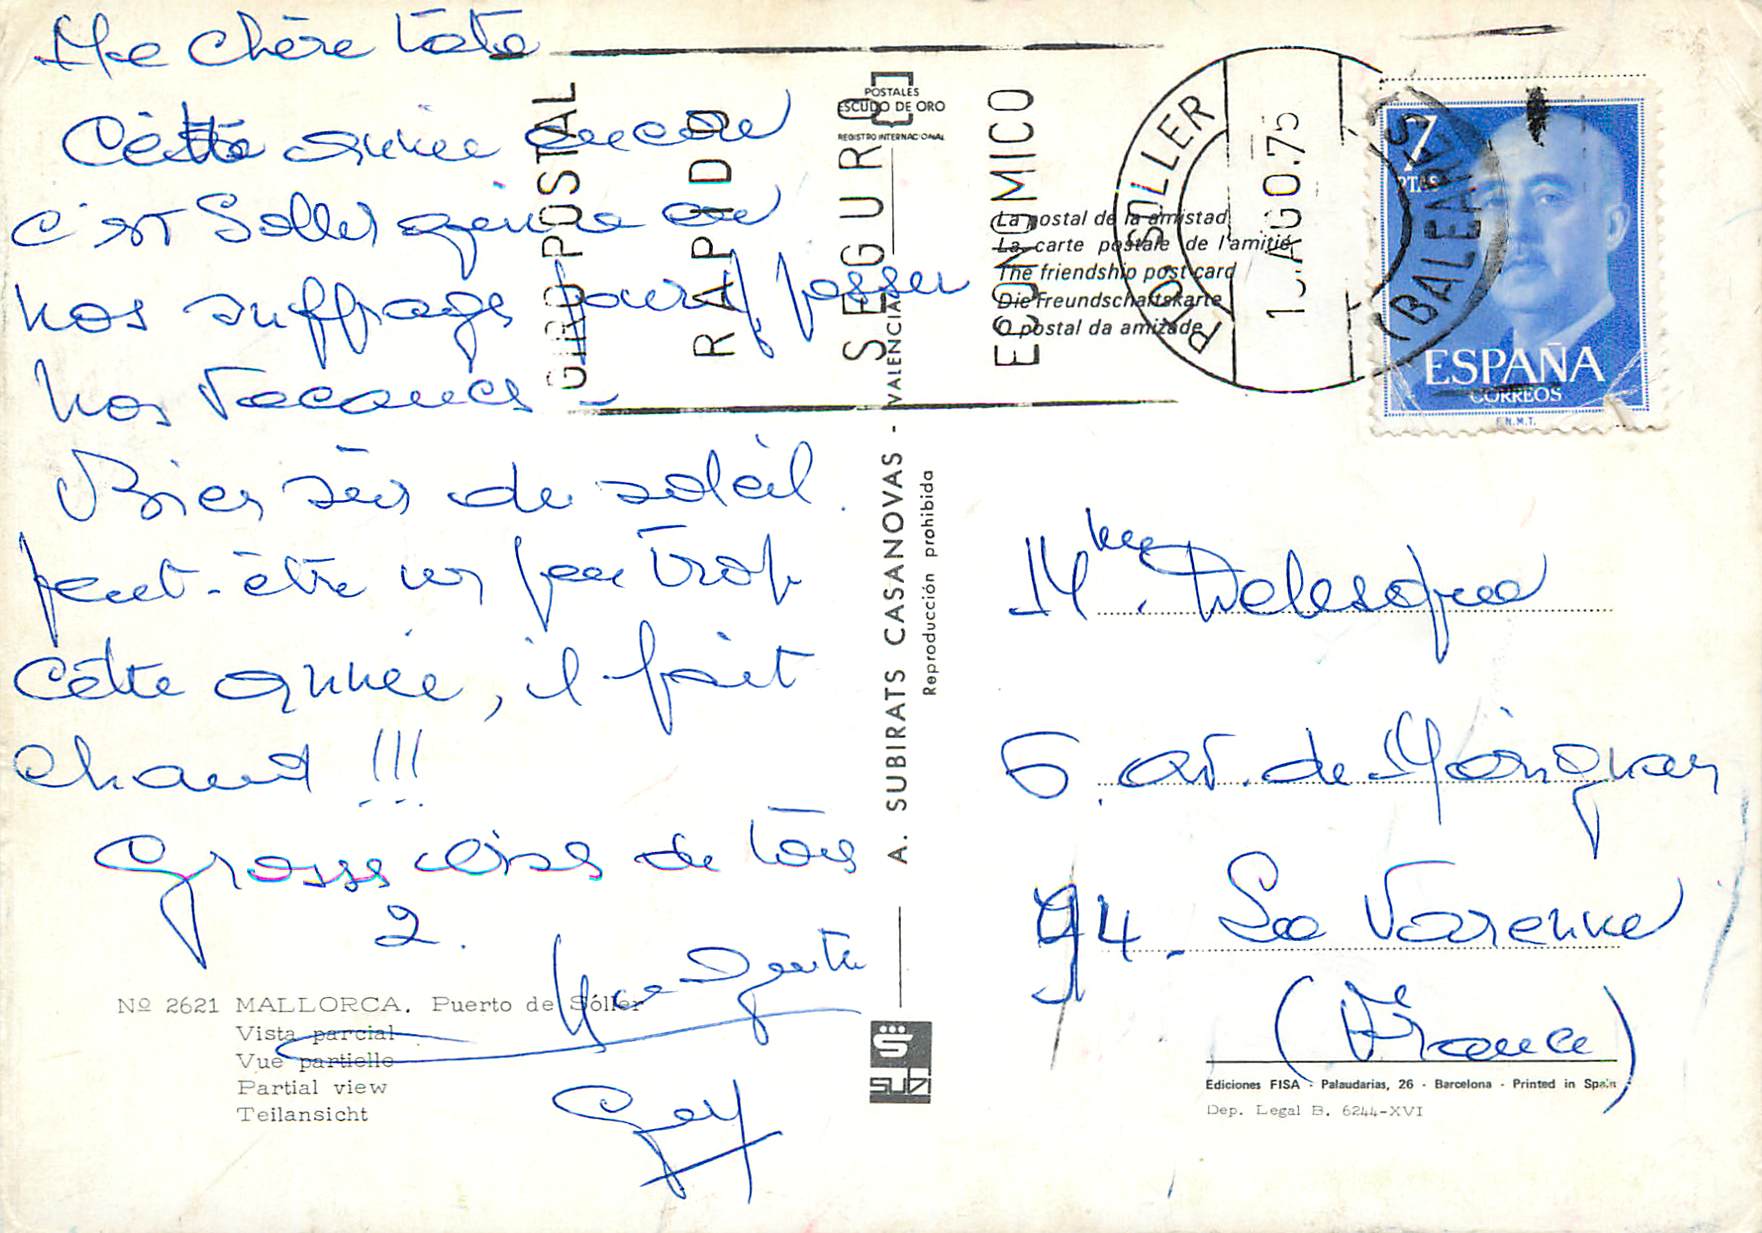 Ma chère Tata
Cette année encore
c'est Soller qui a eu
nos suffrages pour y passer
nos vacances -
Bien sûr du soleil.
peut-être un peu trop
cette année, il fait
chaud !!!
Grosses bises de tous
2.
Guy
Nº 2621 MALLORCA. Puerto de Sóller
Vista parcial
Vue partielle
Partial view
Teilansicht
POSTALES
ESCUDO DE ORO
REGISTRO INTERNACIONAL
GIRO POSTAL
RAPIDO
SEGURO
ECONOMICO
La postal de la amistad
La carte postale de l'amitié
The friendship post card
Die Freundschaftskarte
O postal da amizade
PTO. SOLLER
AGO.75
(BALEARES)
7
PTAS
ESPAÑA
CORREOS
F.N.M.T.
A. SUBIRATS CASANOVAS - VALENCIA
Reproducción prohibida
Mme. Delesque
6. av. de Marignan
94. La Varenne
(France)
subi
Ediciones FISA - Palaudarias, 26 - Barcelona - Printed in Spain
Dep. Legal B. 6244-XVI